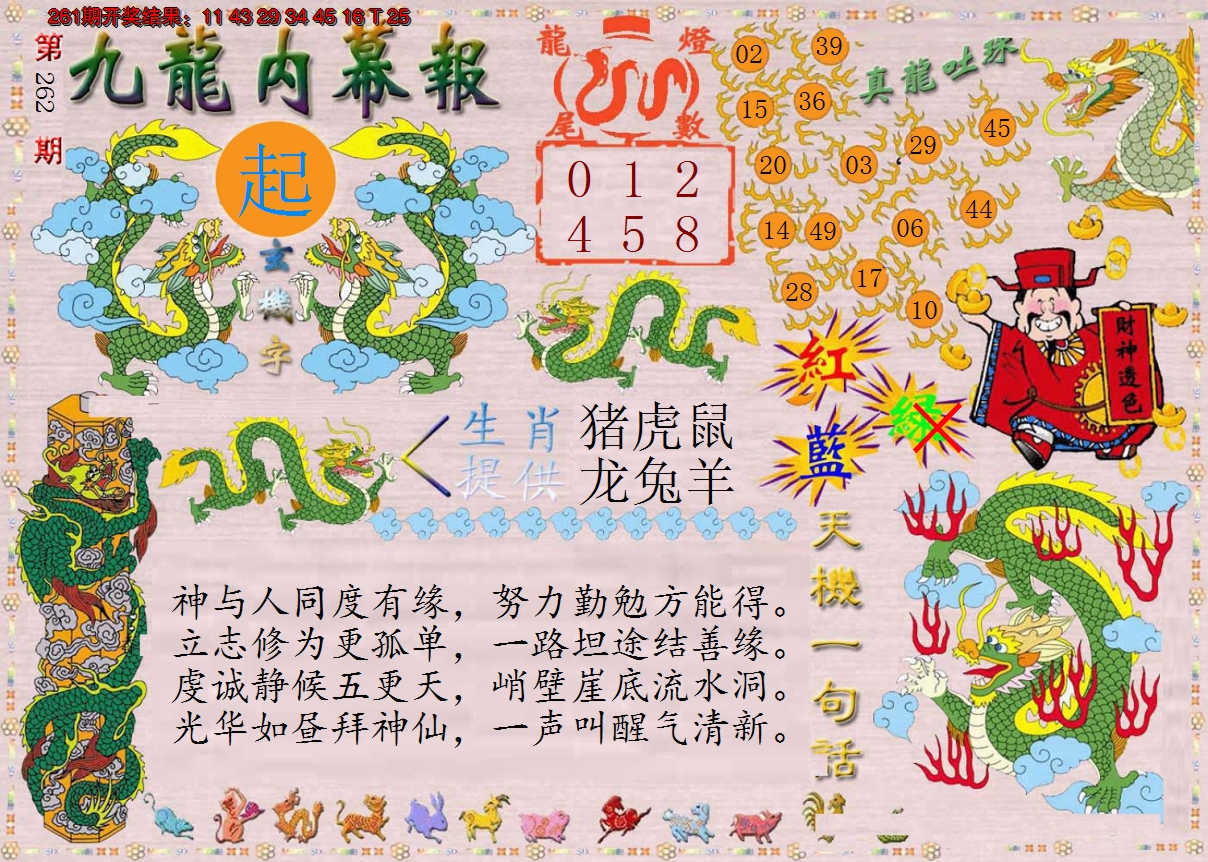 261期开奖结果：11 43 29 34 45 16 T 25
第262期
九龍内幕報
起
玄機字
龍燈
尾數
0 1 2
4 5 8
真龍吐珠
02 39
15 36
20 03 29 45
14 49 06 44
28 17 10
紅
綠
藍
財神透色
生肖 猪虎鼠
提供 龙兔羊
天機一句話
神与人同度有缘，努力勤勉方能得。
立志修为更孤单，一路坦途结善缘。
虔诚静候五更天，峭壁崖底流水洞。
光华如昼拜神仙，一声叫醒气清新。